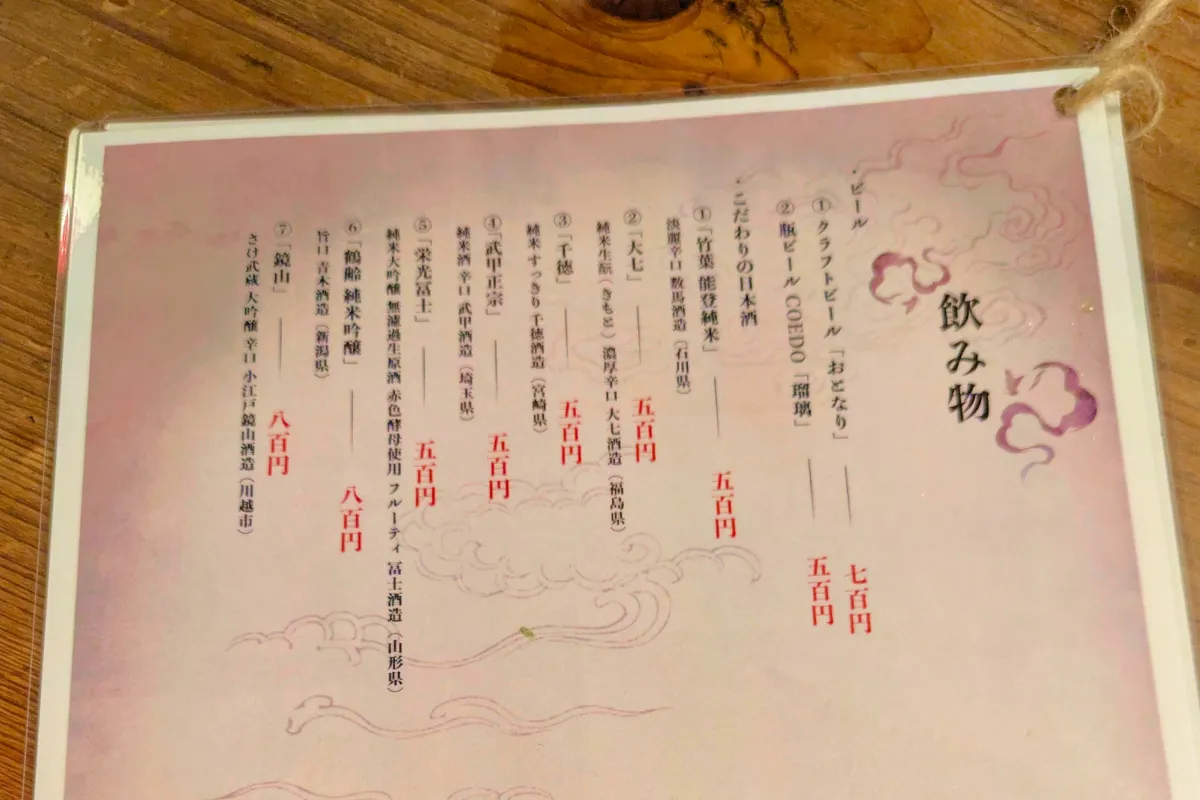 飲み物
・ビール
① クラフトビール 「おとなり」 ―― 七百円
② 瓶ビール COEDO 「瑠璃」 ―― 五百円
・こだわりの日本酒
① 「竹葉 能登純米」 ―― 五百円
淡麗辛口 数馬酒造 (石川県)
② 「大七」 ―― 五百円
純米生酛 (きもと) 濃厚辛口 大七酒造 (福島県)
③ 「千徳」 ―― 五百円
純米 すっきり 千徳酒造 (宮崎県)
④ 「武甲正宗」 ―― 五百円
純米酒 辛口 武甲酒造 (埼玉県)
⑤ 「栄光冨士」 ―― 五百円
純米大吟醸 無濾過生原酒 赤色酵母使用 フルーティ 冨士酒造 (山形県)
⑥ 「鶴齢 純米吟醸」 ―― 八百円
旨口 青木酒造 (新潟県)
⑦ 「鏡山」 ―― 八百円
さけ武蔵 大吟醸 辛口 小江戸鏡山酒造 (川越市)